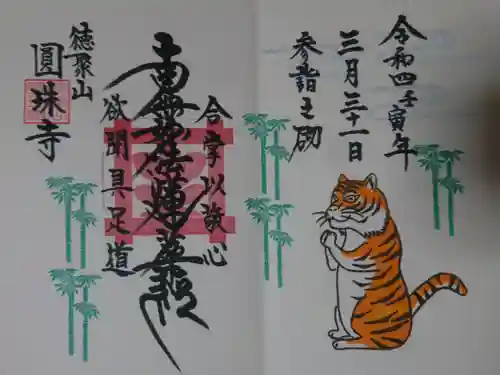 令和四壬寅年
三月三十一日
参詣之砌
合掌以敬心
南無妙法蓮華経
欲聞具足道
徳聚山
圓珠寺